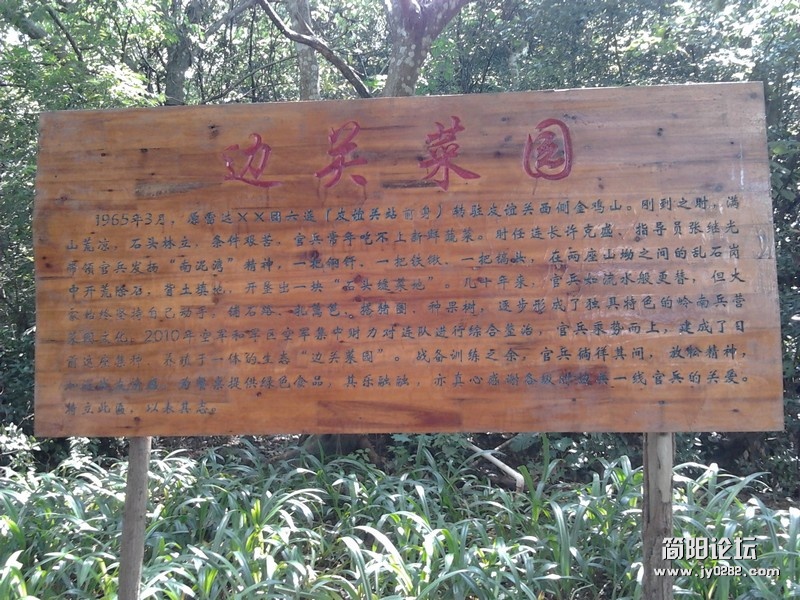 边关菜园
1965年3月，原雷达××团六连（友谊关站前身）转驻友谊关西侧金鸡山。刚到之时，满
山荒凉，石头林立，条件艰苦，官兵常年吃不上新鲜蔬菜。时任连长许克盛，指导员张继光
带领官兵发扬“南泥湾”精神，一把钢钎、一把铁锹、一把镐，在两座山坳之间的乱石岗
中开荒除石，背土填地，开垦出一块“石头缝菜地”。几十年来，官兵如流水般更替，但大
家始终坚持自己动手，铺石搭、扎篱笆、搭猪圈、种果树，逐步形成了独具特色的岭南兵营
菜园文化。2010年空军和军区空军集中财力对连队进行综合整治，官兵乘势而上，建成了目
前这座集种、养殖于一体的生态“边关菜园”。战备训练之余，官兵徜徉其间，放松精神，
为餐桌提供绿色食品，其乐融融，亦真心感谢各级一线官兵的关爱。
特立此匾，以表其志。
简阳论坛
www.jy0282.com